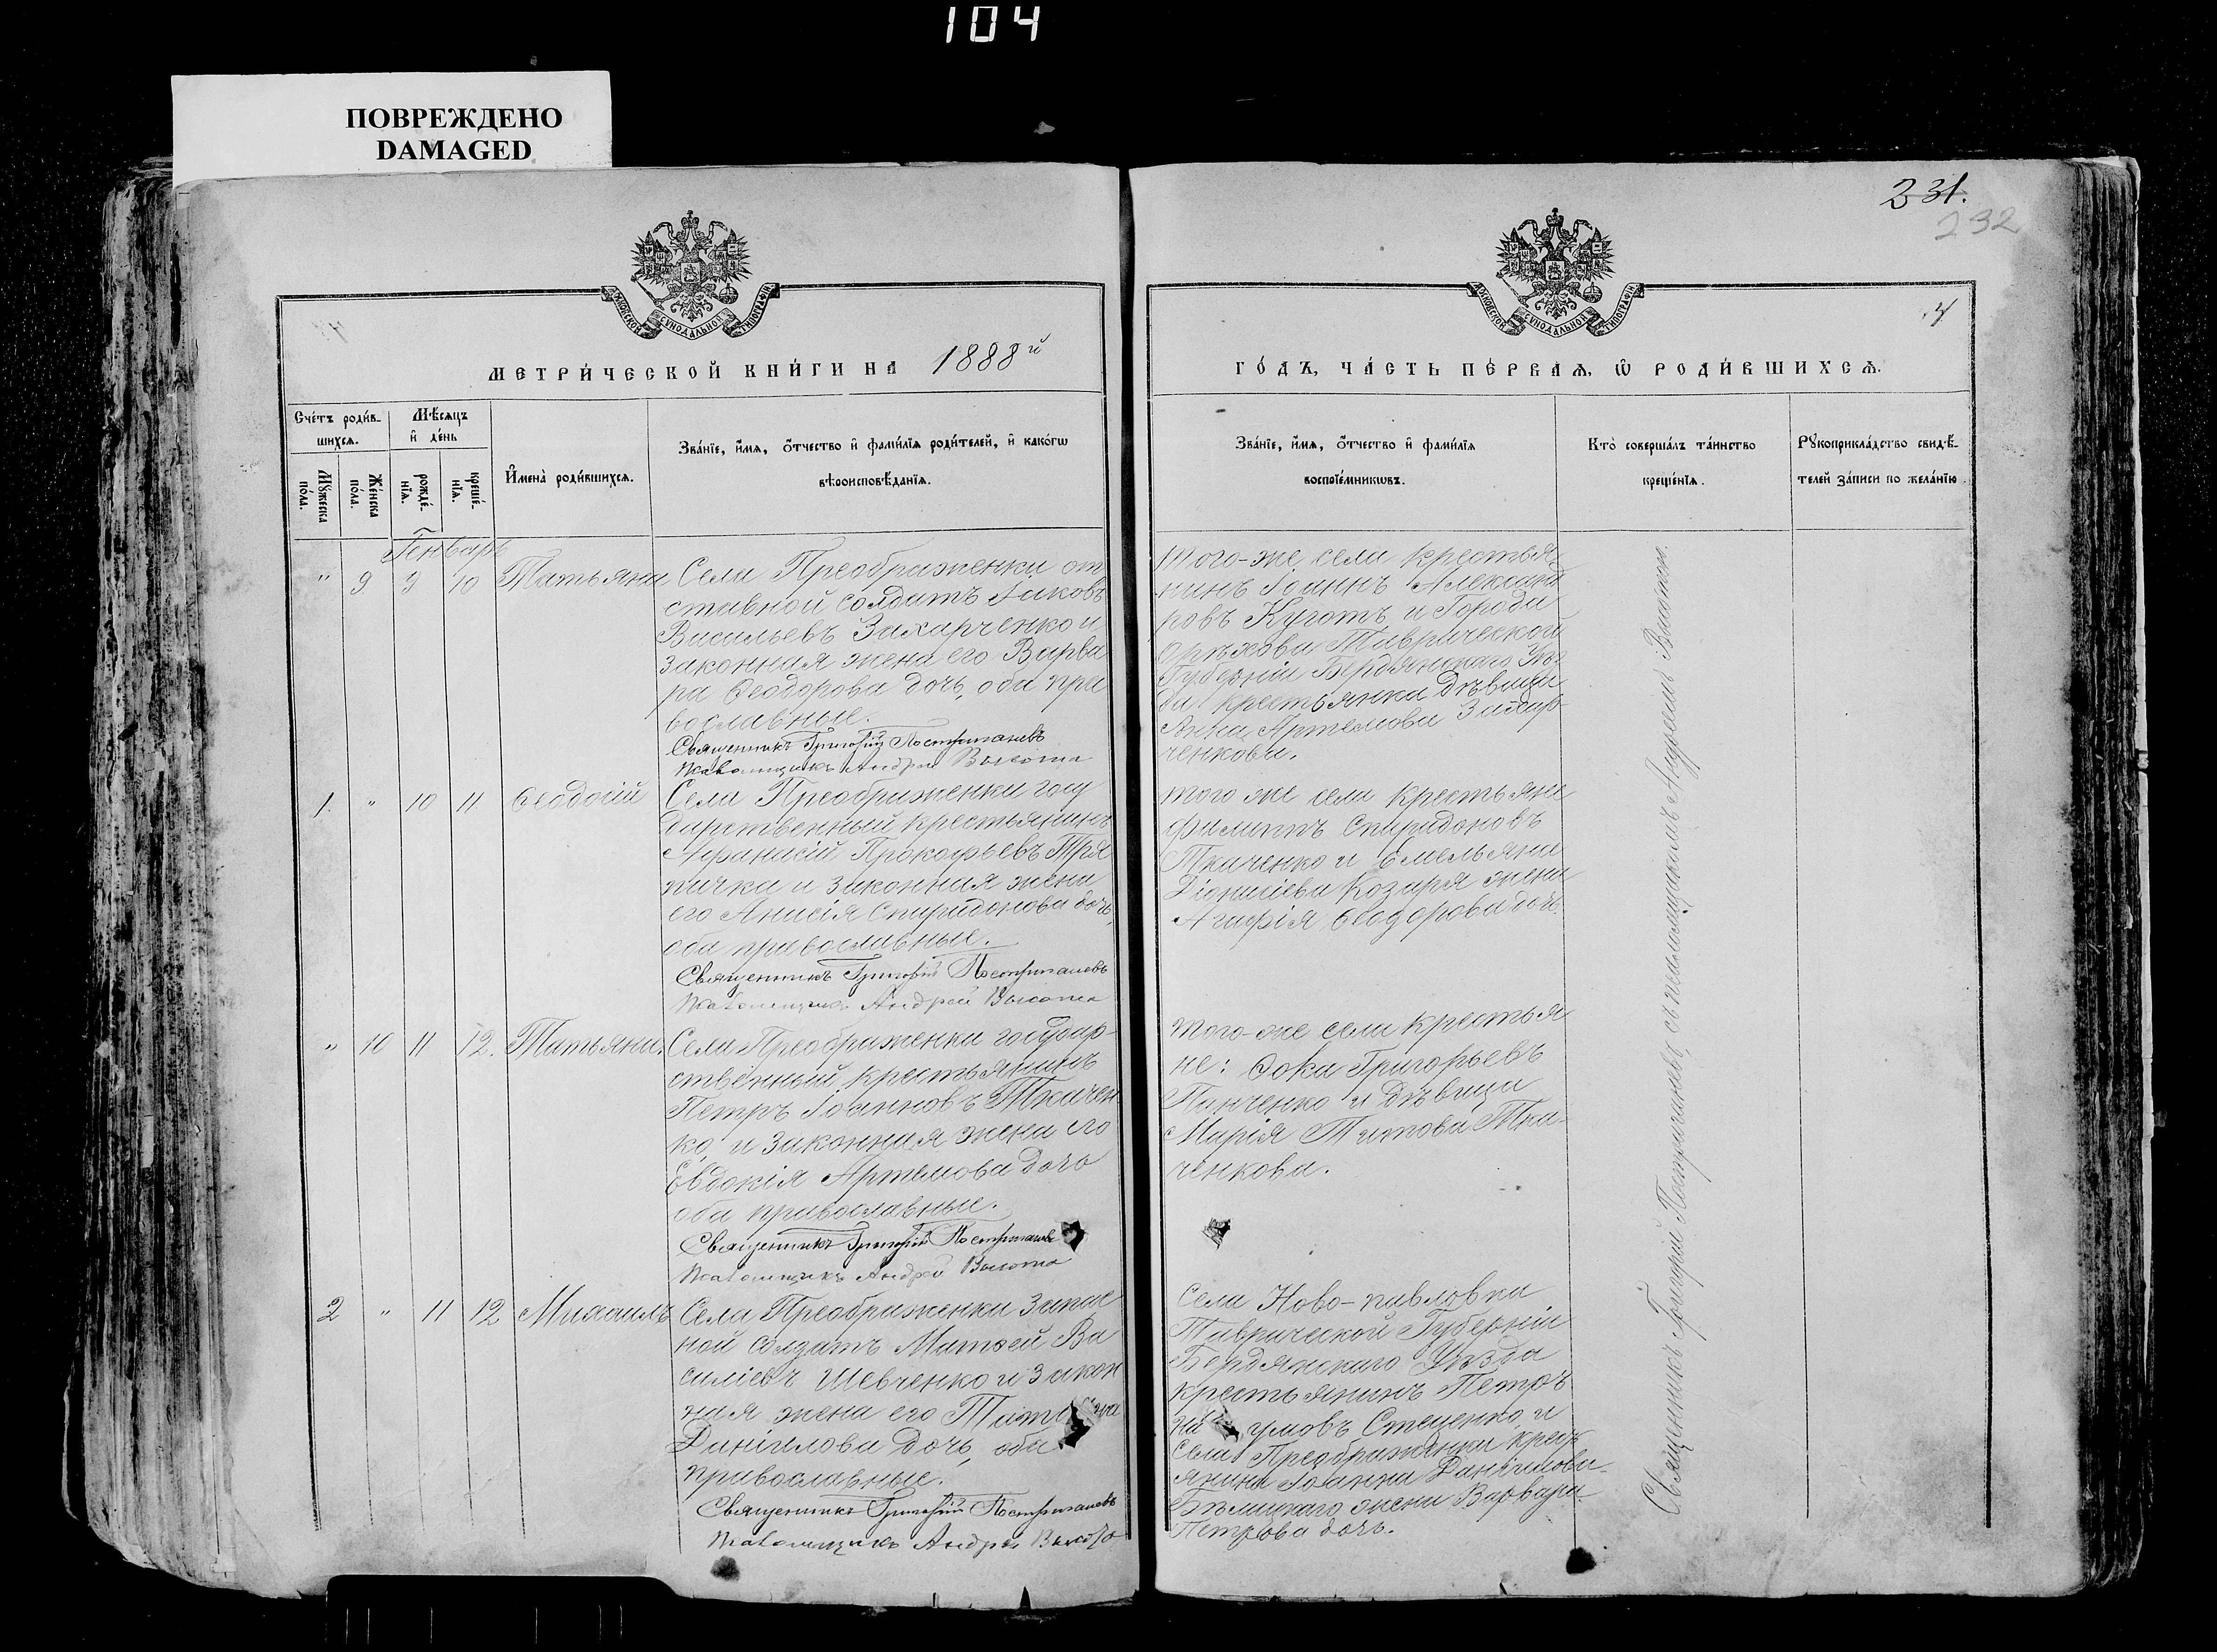 104
ПОВРЕЖДЕНО
DAMAGED
231.
232
МОСКОВСКОЙ СѴНОДАЛЬНОЙ ТИПОГРАФІИ
МОСКОВСКОЙ СѴНОДАЛЬНОЙ ТИПОГРАФІИ
4
МЕТРИ́ЧЕСКОЙ КНИ́ГИ НА 1888й
ГО́ДЪ, ЧА́СТЬ ПЕ́РВАѦ, Ѡ҆ РОДИ́ВШИХСѦ.
Сче́тъ роди́в-
шихсѧ.
Мѣ́сѧцъ
и҆ де́нь
Мꙋ́жеска
по́ла.
Же́нска
по́ла.
рожде́-
нїѧ.
креще́-
нїѧ.
И҆мена̀ роди́вшихсѧ.
Зва́нїе, и҆́мѧ, ѻ҆́тчество и҆ фами́лїѧ роди́телей, и҆ како́гѡ
вѣроисповѣ́данїѧ.
Зва́нїе, и҆́мѧ, ѻ҆́тчество и҆ фами́лїѧ
воспрїе́мникѡвъ.
Кто̀ соверша́лъ та́инство
креще́нїѧ.
Рꙋкоприкла́дство свидѣ́-
телей за́писи по жела́нїю.
Генварь
" 9 9 10 Татьяна
Села Преображенки от
ставной солдатъ Іаковъ
Васильевъ Захарченко и
законная жена его Варва
ра Ѳеодорова дочь, оба пра
вославные.
Священникъ Григорій Постригачевъ
Псаломщикъ Андрей Высота
Того-же села крестья
нинъ Іоаннъ Александ
ровъ Куготъ и Города
Орѣхова Таврической
Губерніи Бердянскаго Уѣз
да крестьянка дѣвица
Анна Артемова Захар
ченкова.
1. " 10 11 Ѳеодосій
Села Преображенки госу
дарственный крестьянинъ
Аѳанасій Прокофьевъ Тря
пичка и законная жена
его Анисія Спиридонова дочь,
оба православные.
Священникъ Григорій Постригачевъ
Псаломщикъ Андрей Высота
того же села крестьяне
Филиппъ Спиридоновъ
Ткаченко и Емельяна
Діонисіева Козаря жена
Агафія Ѳеодорова дочь.
" 10 11 12. Татьяна.
Села Преображенки государ-
ственный крестьянинъ
Петръ Іоанновъ Ткачен
ко, и законная жена его
Евдокія Артемова дочь
оба православные.
Священникъ Григорій Постригачевъ
Псаломщикъ Андрей Высота
того-же села крестья
не: Ѳока Григорьевъ
Панченко и дѣвица
Марія Титова Тка-
ченкова.
2 " 11 12 Михаилъ
Села Преображенки запас
ной солдатъ Матѳей Ва
силіевъ Шевченко и закон
ная жена его
Даніилова дочь, оба
православные.
Священникъ Григорій Постригачевъ
Псаломщикъ Андрей Высота
Села Ново-павловки
Таврической Губерніи
Бердянскаго Уѣзда
крестьянинъ Петръ
умовъ Стеценко и
села Преображенки крест
янина Іоанна Даніилова
Бѣлицкаго жена Варвара
Петрова дочь.
Священникъ Григорій Постригачевъ, съ псаломщикомъ Андреемъ Высотою.